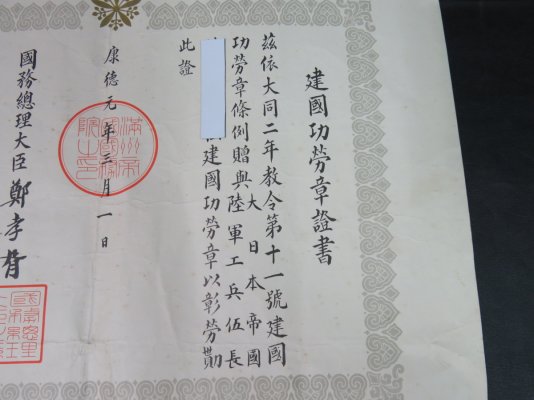 建國功勞章證書
茲依大同二年教令第十一號建國
功勞章條例贈與大日本帝國
陸軍工兵伍長
建國功勞章以彰勞勩
此證
康德元年三月一日
滿州帝
國國務
院之印
國務總理大臣鄭孝胥